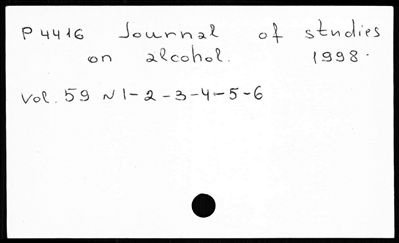 P 4416 Journal of studies
on alcohol. 1998.
Vol. 59 N 1-2-3-4-5-6